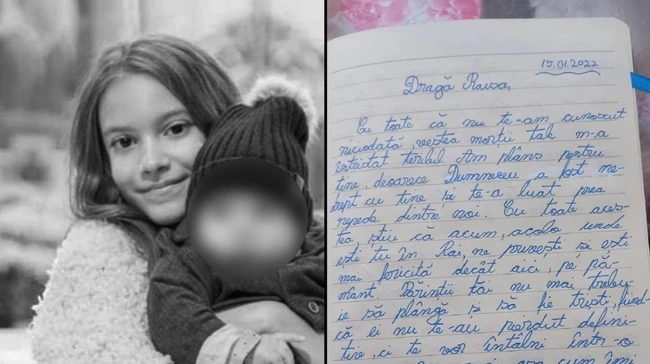 15.01.2022
Dragă Raisa,
Cu toate că nu te-am cunoscut
niciodată, vestea morții tale m-a
întristat teribil. Am plâns pentru
tine, deoarece Dumnezeu a fost ne-
drept cu tine și te-a luat prea
repede dintre noi. Cu toate aces-
tea, știu că acum, acolo unde
ești tu în Rai, ne privești și ești
mai fericită decât aici, pe pă-
mânt. Părinții tăi nu mai trebu-
ie să plângă și să fie triști, fiind-
că ei nu te-au pierdut defini-
tiv, ci te vor întâlni într-o
cum îmi